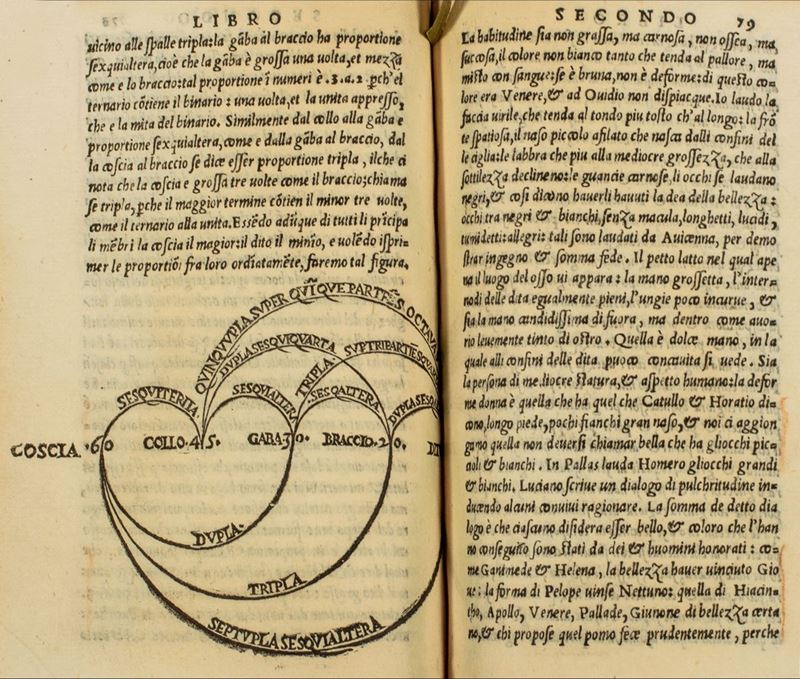 LIBRO
uicino alle spalle tripla: la gãba al braccio ha proportione
sexquialtera, cioè che la gãba è grossa una uolta, et mezza
come e lo braccio: tal proportione ĩ numeri è .3.a.2. pch'el
ternario cõtiene il binario: una uolta, et la unita appresso,
che e la mita del binario. Similmente dal collo alla gãba e
proportione sexquialtera, come e dalla gãba al braccio, dal
la coscia al braccio se dice esser proportione tripla, ilche ci
nota che la coscia e grossa tre uolte come il braccio: chiama
se tripla, pche il maggior termine cõtien il minor tre uolte,
come il ternario alla unita. Essẽdo adũque di tutti li prĩcipa
li mẽbri la coscia il magior: il dito il minĩo, e uolẽdo ispri=
mer le proportiõi fra loro ordĩatamẽte, faremo tal figura.
QVINQVVPLA SVPER QVĨQVE PARTẼS OCTAVA
DVPLA SESQVIQVARTA
SVPTRIPARTIẼS
SESQVITERTIA
SESQVIALTERA
TRIPLA
SESQALTERA
DVPLA
COSCIA. 60
COLLO. 45.
GABA. 30.
BRACCIO. 20.
DVPLA
TRIPLA
SEPTVPLA SESQVIALTERA
SECONDO 79
La habitudine sia non grassa, ma carnosa, non ossea, ma
succosa, il colore non bianco tanto che tenda al pallore, ma
misto con sangue: se è bruna, non è deforme: di questo co=
lore era Venere, & ad Ouidio non dispiacque. Io laudo la
faccia uirile, che tenda al tondo piu tosto ch'al longo: la frõ
te spatiosa, il naso piccolo afilato che nasca dalli confini del
le ciglia: le labbra che piu alla mediocre grossezza, che alla
sottilezza declineno: le guancie carnose, li occhi se laudano
negri, & cosi dicono hauerli hauuti la dea della bellezza:
occhi tra negri & bianchi, senza macula, longhetti, lucidi,
humidetti: allegri: tali sono laudati da Auicenna, per demo
strar ingegno & somma fede. Il petto latto nel qual ape
na il luogo del osso ui appara: la mano grossetta, l'inter=
nodi delle dita egualmente pieni, l'ungie poco incurue, &
sia la mano candidissima di fuora, ma dentro come auo=
rio leuemente tinto di ostro. Quella è dolce mano, in la
quale alli confini delle dita puoco concauita si uede. Sia
la persona di mediocre statura, & aspetto humano: la defor
me donna è quella che ha quel che Catullo & Horatio di=
cono, longo piede, pochi fianchi gran naso, & noi ci aggion
gamo quella non deuersi chiamar bella che ha gliocchi pic=
cioli & bianchi. In Pallas lauda Homero gliocchi grandi
& bianchi. Luciano scriue un dialogo di pulchritudine in=
ducendo alcuni conuiui ragionare. La somma de detto dia
logo è che ciascuno disidera esser bello, & coloro che l'han
no conseguito sono stati da dei & huomini honorati: co=
me Ganimede & Helena, la bellezza hauer uinciuto Gio
ue: la forma di Pelope uinse Nettuno: quella di Hiacin=
tho, Apollo, Venere, Pallade, Giunone di bellezza certa
no, & chi propose quel pomo fece prudentemente, perche